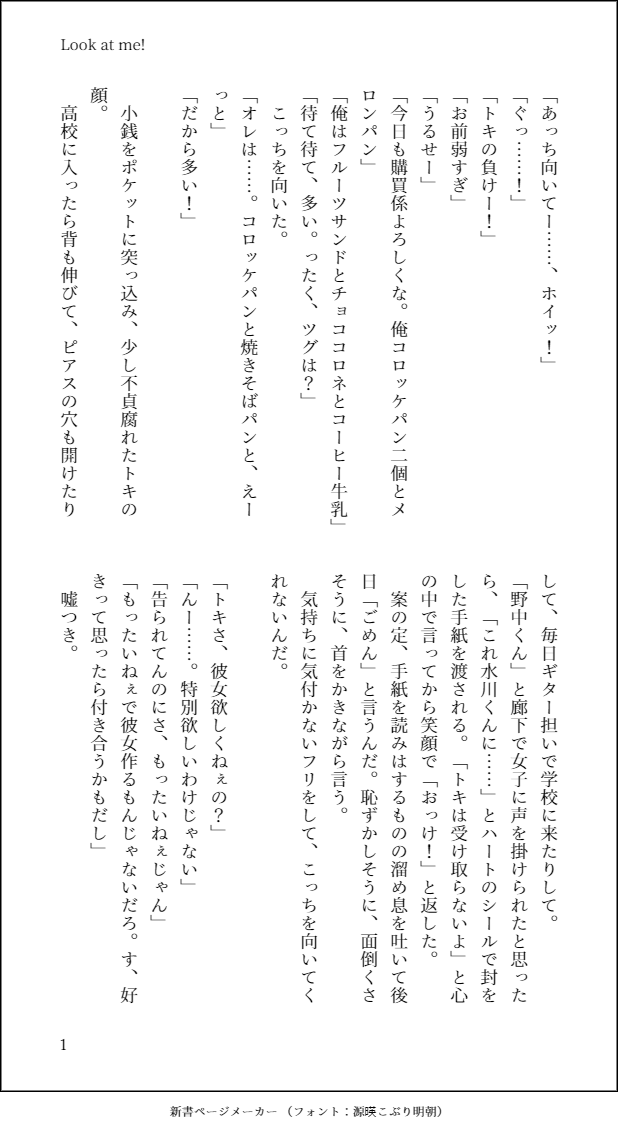 Look at me!
「あっち向いてー……、ホイッ！」
「ぐっ……！」
「トキの負けー！」
「お前弱すぎ」
「うるせー」
「今日も購買係よろしくな。俺コロッケパン二個とメ
ロンパン」
「俺はフルーツサンドとチョココロネとコーヒー牛乳」
「待て待て、多い。ったく、ツグは？」
　こっちを向いた。
「オレは……。コロッケパンと焼きそばパンと、えー
っと」
「だから多い！」
　小銭をポケットに突っ込み、少し不貞腐れたトキの
顔。
　高校に入ったら背も伸びて、ピアスの穴も開けたり
して、毎日ギター担いで学校に来たりして。
「野中くん」と廊下で女子に声を掛けられたと思った
ら、「これ水川くんに……」とハートのシールで封を
した手紙を渡される。「トキは受け取らないよ」と心
の中で言ってから笑顔で「おっけ！」と返した。
　案の定、手紙を読みはするものの溜め息を吐いて後
日「ごめん」と言うんだ。恥ずかしそうに、面倒くさ
そうに、首をかきながら言う。
　気持ちに気付かないフリをして、こっちを向いてく
れないんだ。
「トキさ、彼女欲しくねぇの？」
「んー……。特別欲しいわけじゃない」
「告られてんのにさ、もったいねぇじゃん」
「もったいねぇで彼女作るもんじゃないだろ。す、好
きって思ったら付き合うかもだし」
　嘘つき。
1
新書ページメーカー（フォント：源暎こぶり明朝）